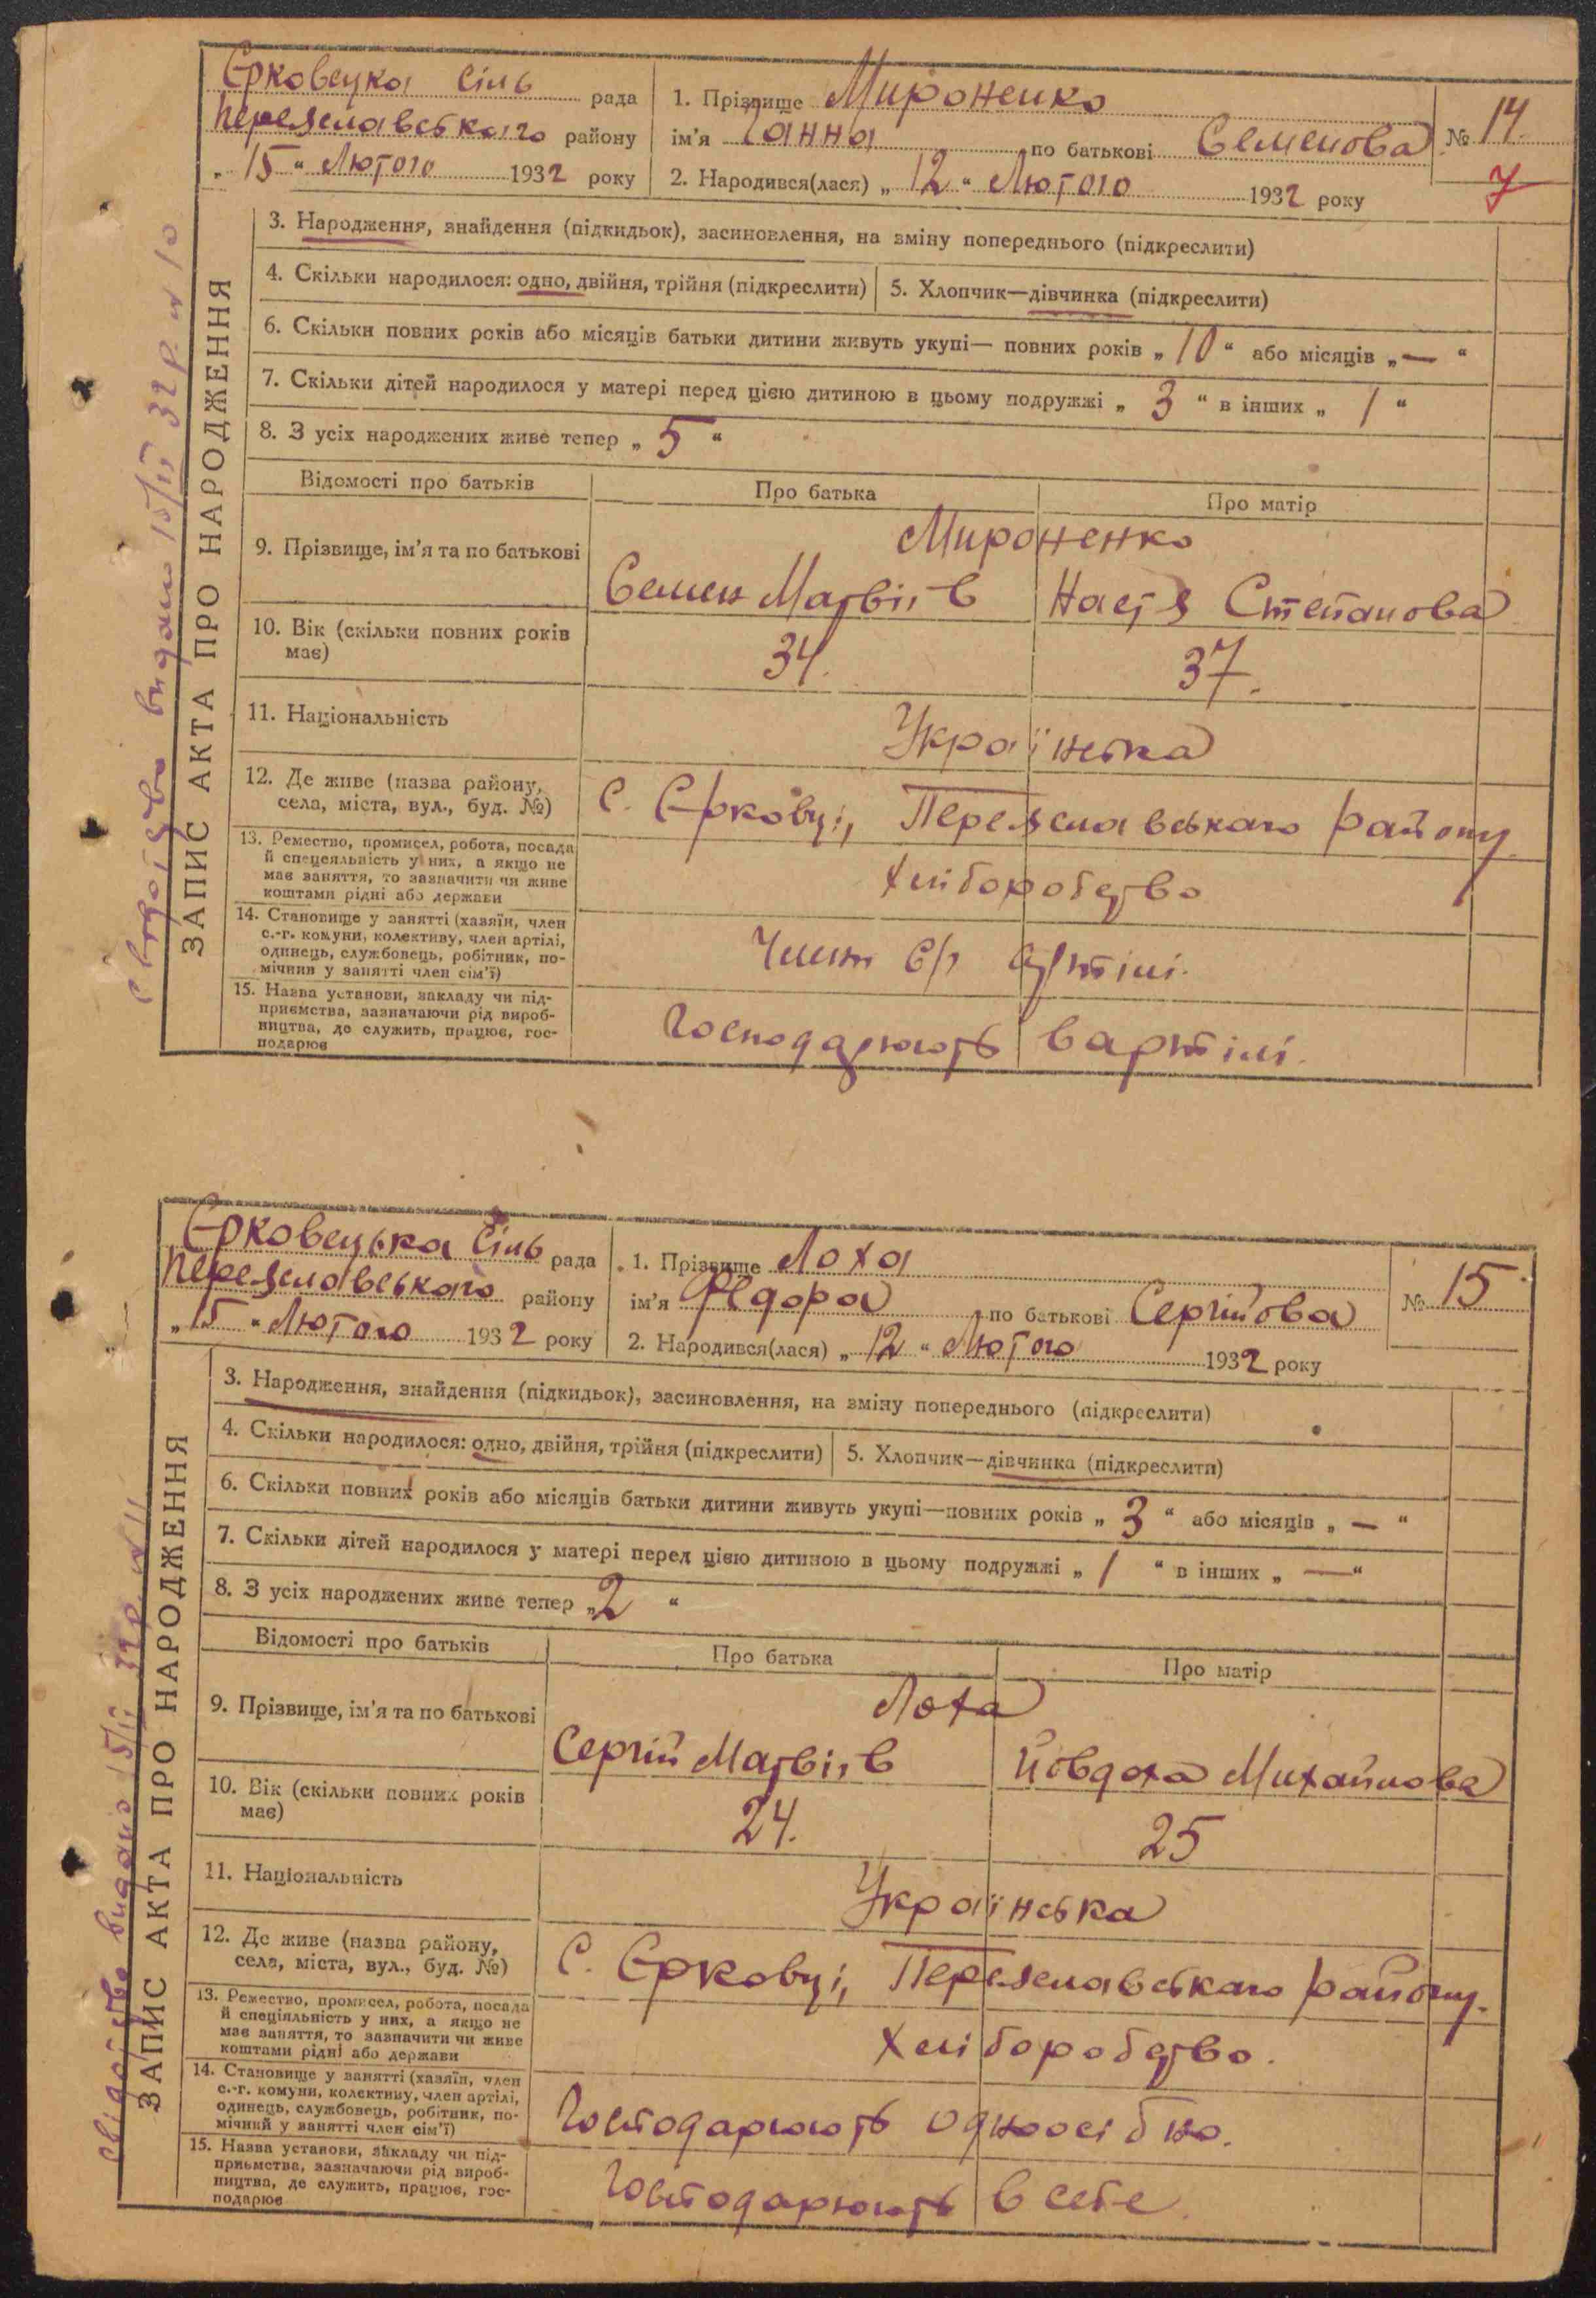 Єрковецка Сіль рада
Переяславського району
„15“ Лютого 1932 року
1. Прізвище Мироненко
ім'я Ганна по батькові Семенова
2. Народився(лася) „12“ Лютого 1932 року
№ 14.
7
ЗАПИС АКТА ПРО НАРОДЖЕННЯ
Свідоцтво видано 15/II 32 р. № 10
3. Народження, знайдення (підкидьок), засиновлення, на зміну попереднього (підкреслити)
4. Скільки народилося: одно, двійня, трійня (підкреслити) 5. Хлопчик—дівчинка (підкреслити)
6. Скільки повних років або місяців батьки дитини живуть укупі— повних років „10“ або місяців „—“
7. Скільки дітей народилося у матері перед цією дитиною в цьому подружжі „3“ в інших „1“
8. З усіх народжених живе тепер „5“
Відомості про батьків Про батька Про матір
Мироненко
9. Прізвище, ім'я та по батькові Семен Матвіїв Настя Степанова
10. Вік (скільки повних років
має) 34. 37.
11. Національність Українська
12. Де живе (назва району,
села, міста, вул., буд. №) С. Єрковці, Переяславського району.
13. Ремество, промисел, робота, посада
й спецеяльність у них, а якщо не
має заняття, то зазначити чи живе
коштами рідні або держави
Хліборобство
14. Становище у занятті (хазяїн, член
с.-г. комуни, колективу, член артілі,
одинець, службовець, робітник, по-
мічний у занятті член сім'ї)
Член с/г артілі.
15. Назва установи, закладу чи під-
приємства, зазначаючи рід вироб-
ництва, де служить, працює, гос-
подарює
Господарюють в артілі.
Єрковецька Сіль рада
Переяславського району
„15“ Лютого 1932 року
1. Прізвище Лоха
ім'я Федора по батькові Сергійова
2. Народився(лася) „12“ Лютого 1932 року
№ 15
ЗАПИС АКТА ПРО НАРОДЖЕННЯ
Свідоцтво видано 15/II 32 р. № 11
3. Народження, знайдення (підкидьок), засиновлення, на зміну попереднього (підкреслити)
4. Скільки народилося: одно, двійня, трійня (підкреслити) 5. Хлопчик—дівчинка (підкреслити)
6. Скільки повних років або місяців батьки дитини живуть укупі—повних років „3“ або місяців „—“
7. Скільки дітей народилося у матері перед цією дитиною в цьому подружжі „1“ в інших „—“
8. З усіх народжених живе тепер „2“
Відомості про батьків Про батька Про матір
Лоха
9. Прізвище, ім'я та по батькові Сергій Матвіїв Йовдоха Михайлова
10. Вік (скільки повних років
має) 24. 25
11. Національність Українська
12. Де живе (назва району,
села, міста, вул., буд. №) С. Єрковці, Переяславського району.
13. Ремество, промисел, робота, посада
й спеціяльність у них, а якщо не
має заняття, то зазначити чи живе
коштами рідні або держави
Хліборобство.
14. Становище у занятті (хазяїн, член
с.-г. комуни, колективу, член артілі,
одинець, службовець, робітник, по-
мічний у занятті член сім'ї)
Господарюють одноосібно.
15. Назва установи, закладу чи під-
приємства, зазначаючи рід вироб-
ництва, де служить, працює, гос-
подарює
Господарюють в себе.